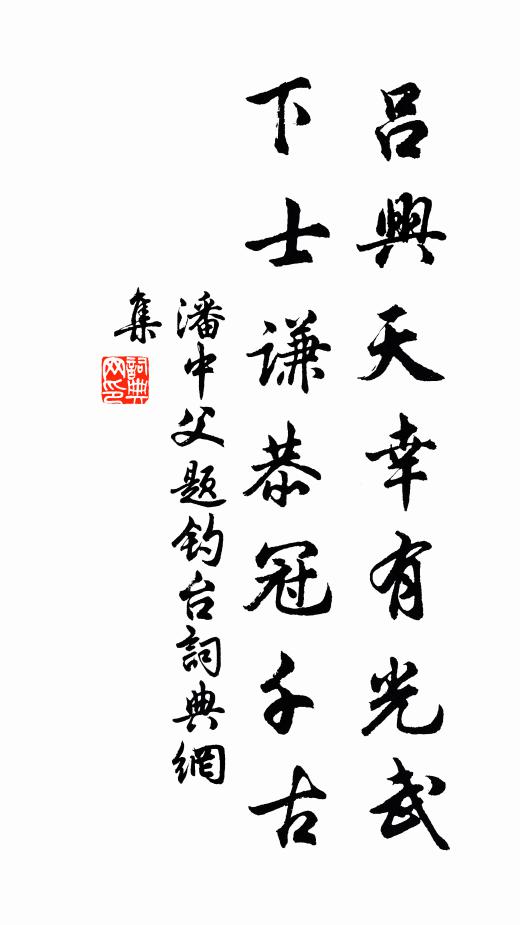 吕興天幸有光武
下士謙恭冠千古
潘中父題钓台詞典網
集
詞典網印